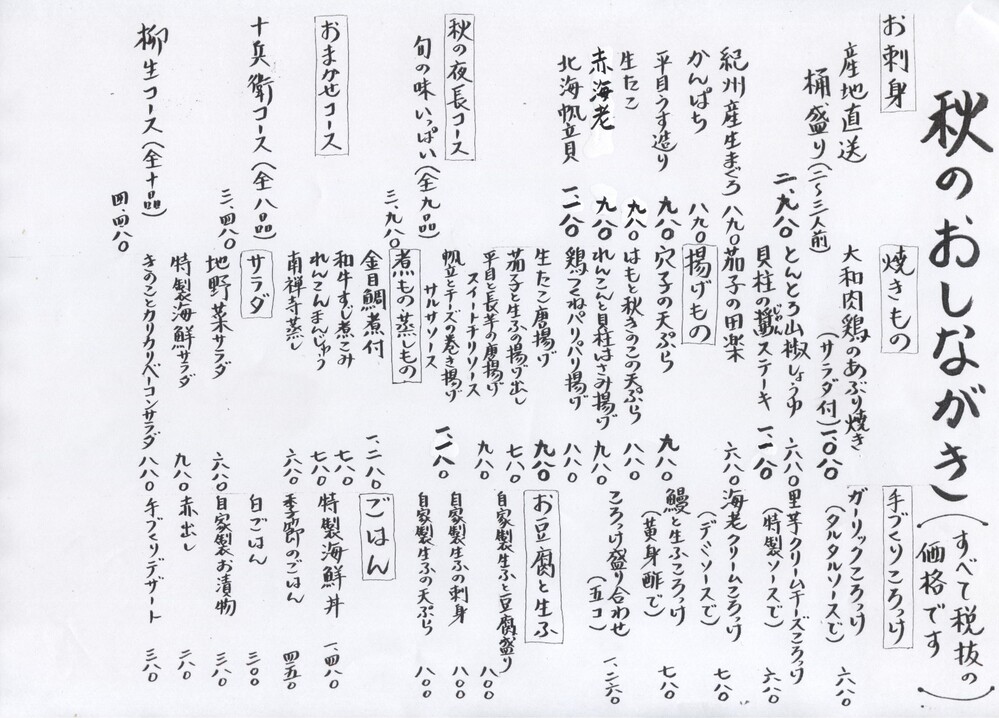 秋のおしながき(すべて税抜の価格です)
お刺身
産地直送
桶盛り(二〜三人前) 二、九八〇
紀州産生まぐろ 八九〇
かんぱち 八九〇
平目うす造り 九八〇
生たこ 九八〇
赤海老 九八〇
北海帆立貝 一、一八〇
秋の夜長コース
旬の味いっぱい(全九品) 三、九八〇
おまかせコース
十兵衛コース(全八品) 三、四八〇
柳生コース(全十品) 四、四八〇
焼きもの
大和肉鶏のあぶり焼き
(サラダ付) 一、〇八〇
とんとろ山椒しょうゆ 六八〇
貝柱の醤ステーキ 一、一八〇
じゃん
茄子の田楽 六八〇
揚げもの
穴子の天ぷら 九八〇
はもと秋きのこの天ぷら 八八〇
れんこんと貝柱はさみ揚げ 九八〇
鶏つくねパリパリ揚げ 八八〇
生たこ唐揚げ 九八〇
茄子と生ふの揚げ出し 七八〇
平目と長芋の唐揚げ
スイートチリソース 九八〇
帆立とチーズの巻き揚げ
サルサソース 一、一八〇
煮もの蒸しもの
金目鯛煮付 一、二八〇
和牛すじ煮こみ 七八〇
れんこんまんじゅう 七八〇
南禅寺蒸し 六八〇
サラダ
地野菜サラダ 六八〇
特製海鮮サラダ 九八〇
きのことカリカリベーコンサラダ 八八〇
手づくりころっけ
ガーリックころっけ
(タルタルソースで) 六八〇
里芋クリームチーズころっけ
(特製ソースで) 六八〇
海老クリームころっけ
(デミソースで) 七八〇
鰻と生ふころっけ
(黄身酢で) 七八〇
ころっけ盛り合わせ
(五コ) 一、二六〇
お豆腐と生ふ
自家製生ふと豆腐盛り 八〇〇
自家製生ふの刺身 八〇〇
自家製生ふの天ぷら 八〇〇
ごはん
特製海鮮丼 一、四八〇
季節のごはん 四五〇
白ごはん 三〇〇
自家製お漬物 三八〇
赤出し 二八〇
手づくりデザート 三八〇